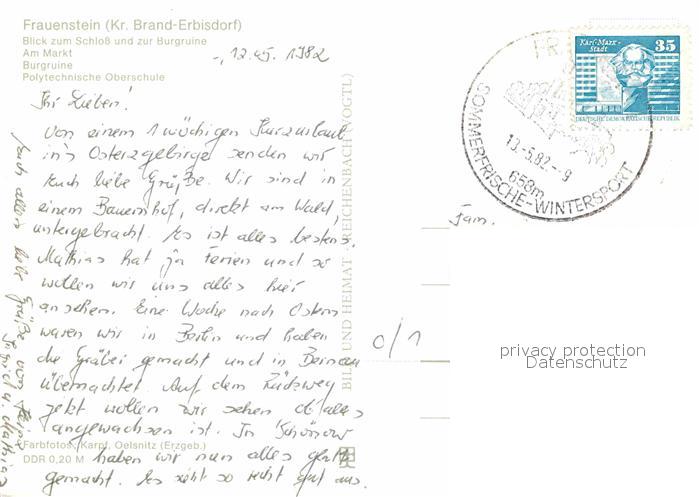 Frauenstein (Kr. Brand-Erbisdorf)
Blick zum Schloß und zur Burgruine
Am Markt
Burgruine
Polytechnische Oberschule
12.05.1982
Ihr Lieben!
Von einem 1 wöchigen Kurzurlaub
in's Osterzgebirge senden wir
Euch liebe Grüße. Wir sind in
einem Bauernhof, direkt am Wald,
untergebracht. Es ist alles bestens.
Mathias hat ja Ferien und so
wollen wir uns alles hier
ansehen. Eine Woche nach Ostern
waren wir in Berlin und haben
die Gräber gemacht und in Bernau
übernachtet. Auf dem Rückweg
jetzt wollen wir sehen ob alles
angewachsen ist. In Schönow
haben wir nun alles glatt
gemacht. Es sieht so recht gut aus.
Euch allen liebe Grüße von
Ingrid u. Mathias
Farbfotos: Karpf, Oelsnitz (Erzgeb.)
DDR 0,20 M
BILD UND HEIMAT REICHENBACH (VOGTL)
0/1
Karl-Marx-
Stadt
35
DEUTSCHE DEMOKRATISCHE REPUBLIK
13.-5.82.-9
658m
SOMMERFRISCHE-WINTERSPORT
Fam.
privacy protection
Datenschutz